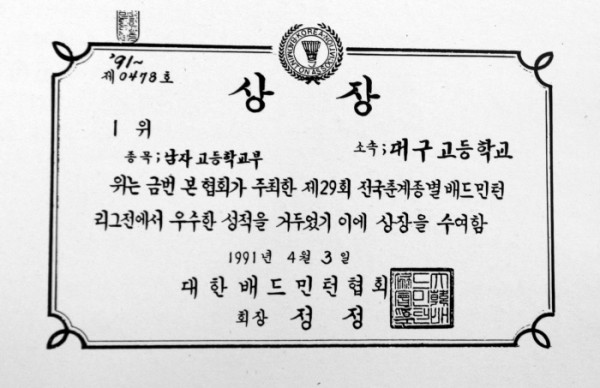 '91~
제0478호
KOREA BADMINTON ASSOCIATION
상장
1 위
종목; 남자 고등학교부
소속; 대구고등학교
위는 금번 본 협회가 주최한 제29회 전국춘계종별 배드민턴
리그전에서 우수한 성적을 거두었기 이에 상장을 수여함
1991년 4월 3일
대한배드민턴협회
회장 정 정